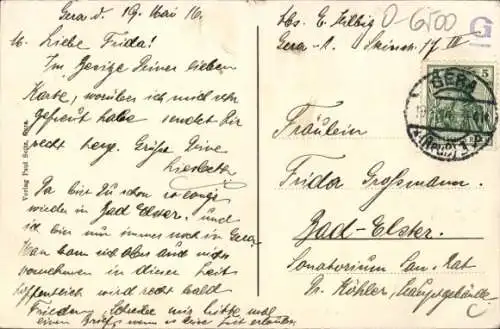 Gera d. 19. Mai 16.
M. Liebe Frida!
Im Besitze Deiner lieben
Karte, worüber ich mich sehr
gefreut habe sendet Dir
recht herzl. Grüße Deine
Da bist Du schon so lange
wieder in Bad Elster, und
ich bin nun immer noch in Gera.
Man kann sich aber auch nichts
vornehmen in dieser Zeit
hoffentlich wird recht bald
Frieden, Schreibe mir bitte mal
einen Brief, wenn es Deine Zeit erlaubt.
Verlag Paul Gera.
Abs. E. Helbig
Gera
O-6500
G
5
GERA
Fräulein
Frida Großmann.
Bad-Elster.
Sanatorium San. Rat
Dr. Köhler, Hauptgebäude